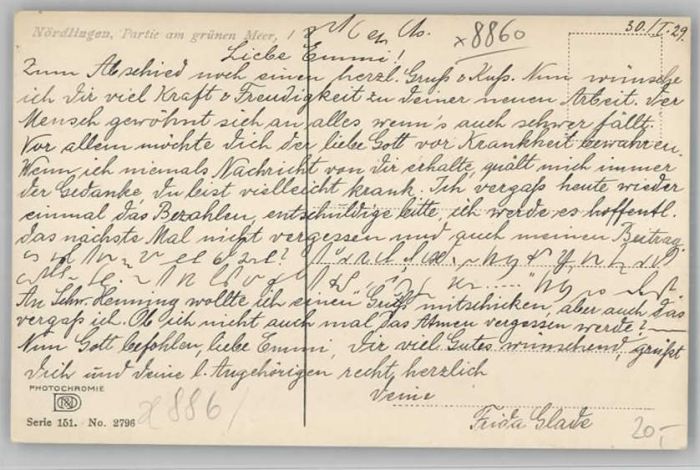 Nördlingen, Partie am grünen Meer,
x 8860
30./I. 29.
Liebe Emmi!
Zum Abschied noch einen herzl. Gruß & Kuß. Nun wünsche
ich Dir viel Kraft & Freudigkeit zu deiner neuen Arbeit. Der
Mensch gewöhnt sich an alles wenn's auch schwer fällt.
Vor allem möchte Dich der liebe Gott vor Krankheit bewahren.
Wenn ich niemals Nachricht von Dir erhalte, quält mich immer
der Gedanke, Du bist vielleicht krank. Ich vergaß heute wieder
einmal das Bezahlen, entschuldige bitte, ich werde es hoffentl.
das nächste Mal nicht vergessen und auch meinen Beitrag.
An Schw. Henning wollte ich einen Gruß mitschicken, aber auch das
vergaß ich. Ob ich nicht auch mal das Atmen vergessen werde?
Nun Gott befohlen, liebe Emmi, Dir viel Gutes wünschend grüßt
Dich und deine l. Angehörigen recht herzlich
Deine
Frida Glade
PHOTOCHROMIE
Serie 151. No. 2796
x 886/
20,-